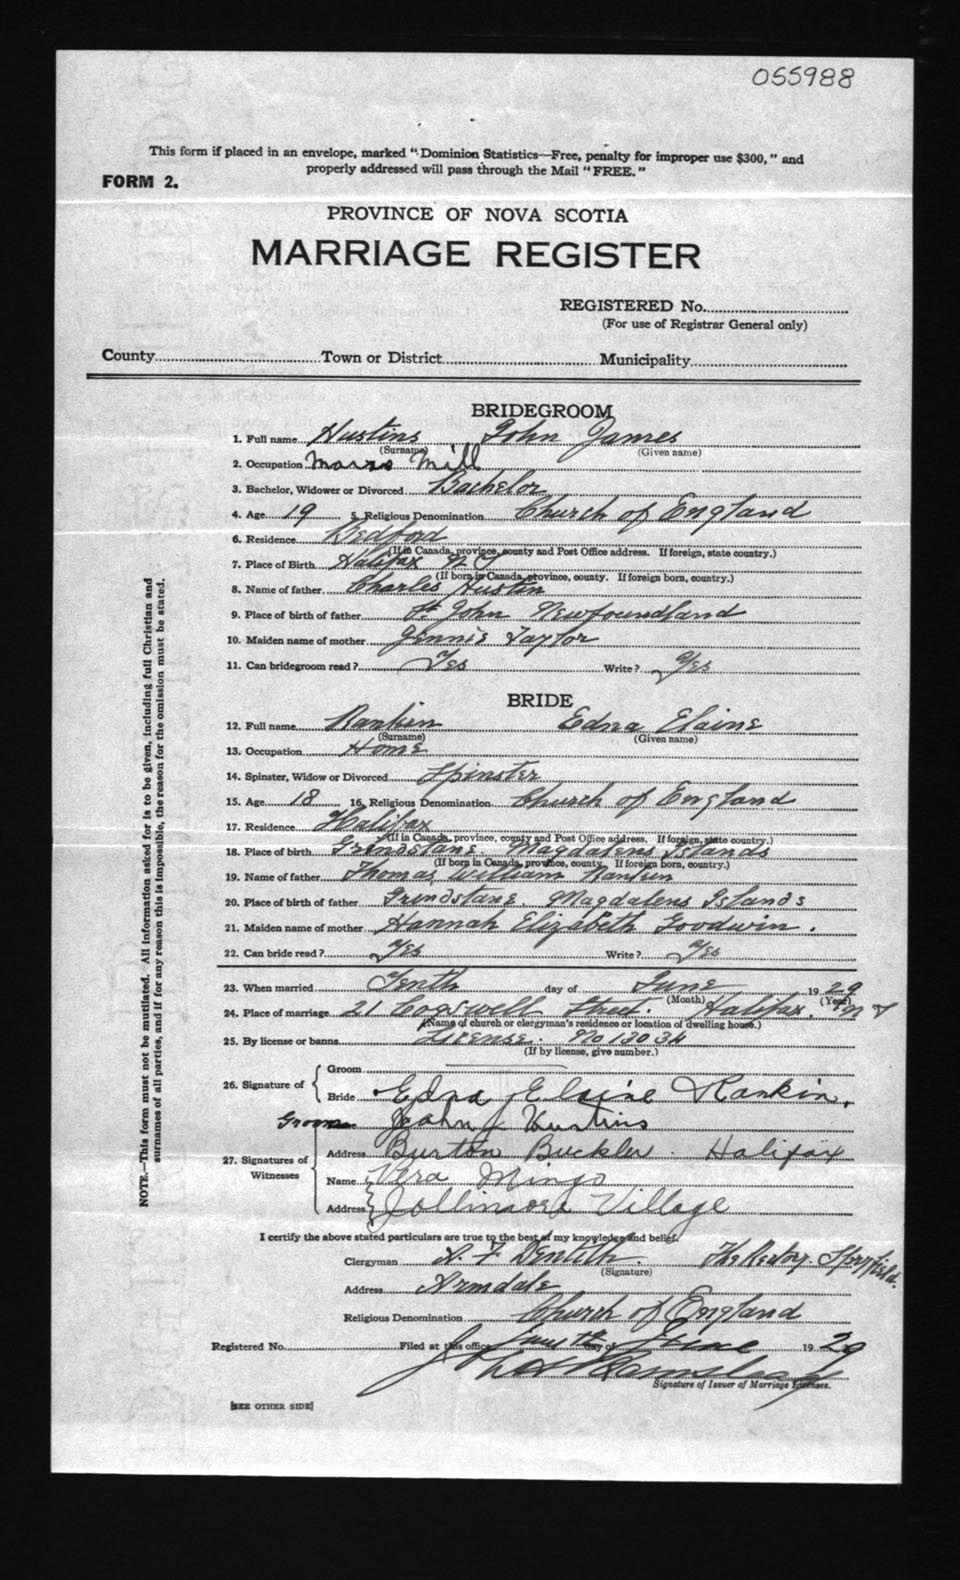 055988
This form if placed in an envelope, marked "Dominion Statistics—Free, penalty for improper use $300," and
properly addressed will pass through the Mail "FREE."
FORM 2.
PROVINCE OF NOVA SCOTIA
MARRIAGE REGISTER
REGISTERED No.
(For use of Registrar General only)
County Town or District Municipality
BRIDEGROOM
1. Full name Hustins John James
(Surname) (Given name)
2. Occupation Mill
3. Bachelor, Widower or Divorced Bachelor
4. Age 19 5. Religious Denomination Church of England
6. Residence Bedford
(If in Canada, province, county and Post Office address. If foreign, state country.)
7. Place of Birth Halifax N S
(If born in Canada, province, county. If foreign born, country.)
8. Name of father Charles Hustin
9. Place of birth of father St John Newfoundland
10. Maiden name of mother Jennie Taylor
11. Can bridegroom read? Yes Write? Yes
BRIDE
12. Full name Rankin Edna Elaine
(Surname) (Given name)
13. Occupation Home
14. Spinster, Widow or Divorced Spinster
15. Age 18 16. Religious Denomination Church of England
17. Residence Halifax
(If in Canada, province, county and Post Office address. If foreign, state country.)
18. Place of birth Grindstane. Magdalens Islands
(If born in Canada, province, county. If foreign born, country.)
19. Name of father Thomas William Rankin
20. Place of birth of father Grindstane. Magdalens Islands
21. Maiden name of mother Hannah Elizabeth Goodwin.
22. Can bride read? Yes Write? Yes
23. When married Tenth day of June 1929
(Month) (Year)
24. Place of marriage 21 Cogswell Street. Halifax. N S
(Name of church or clergyman's residence or location of dwelling house.)
25. By license or banns License. No 13034
(If by license, give number.)
26. Signature of Groom
Bride Edna Elaine Rankin.
Groom John J Hustins
27. Signatures of Witnesses Address Burton Buckler. Halifax
Name Vera Mingo
Address Jollimore Village
I certify the above stated particulars are true to the best of my knowledge and belief.
Clergyman A. F. Dentith. The Rectory. Spryfield.
(Signature)
Address Armdale
Religious Denomination Church of England
Registered No. Filed at this office day of June 1929
Signature of Issuer of Marriage Licenses.
[SEE OTHER SIDE]
NOTE.—This form must not be mutilated. All information asked for is to be given, including full Christian and
surnames of all parties, and if for any reason this is impossible, the reason for the omission must be stated.